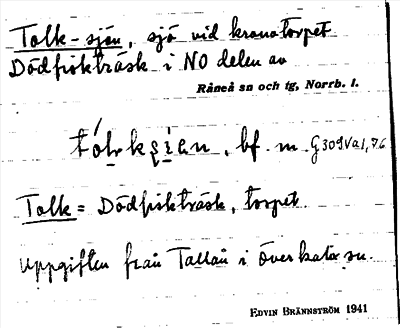 Talk-sjön, sjö vid kronotorpet
Dödfiskträsk i NO delen av
Råneå sn och tg, Norrb. l.
bf. m. G309Va1,76
Talk = Dödfiskträsk, torpet.
Uppgiften från Tallån i Överkalix sn.
EDVIN BRÄNNSTRÖM 1941